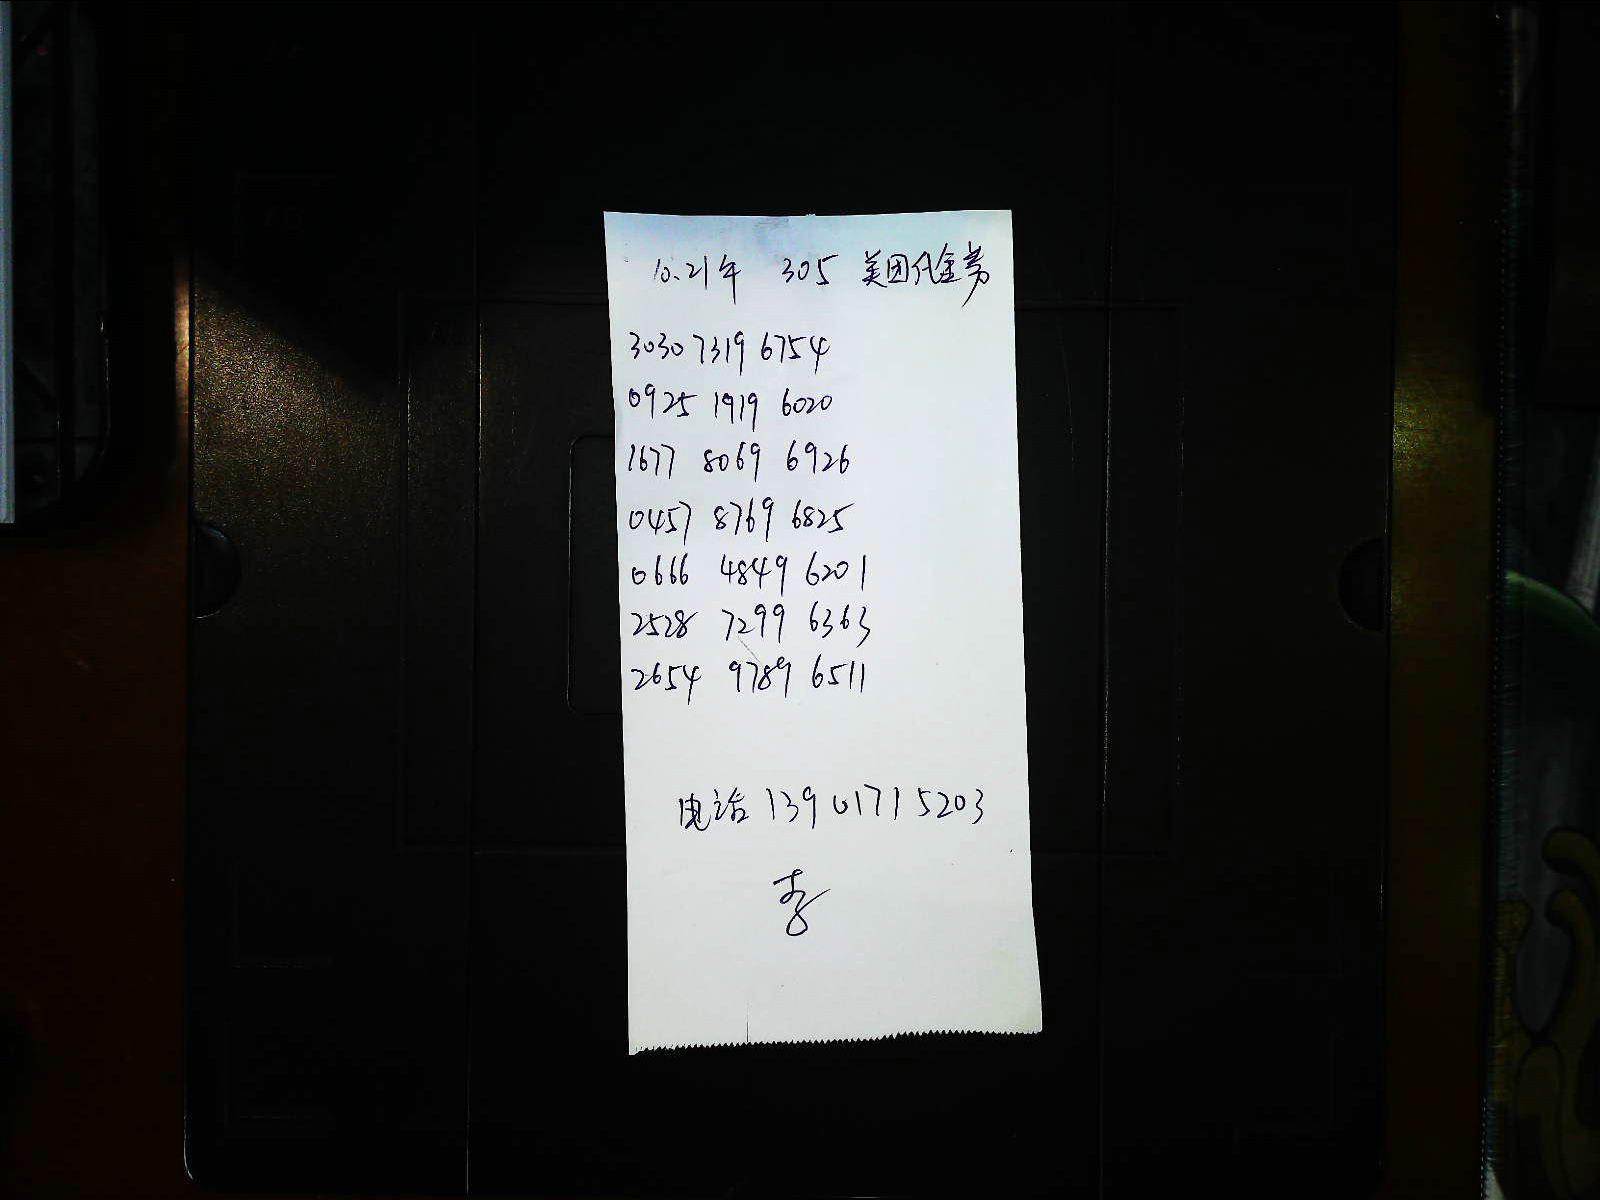 10.21午 305 美团代金券
3030 7319 6754
0925 1919 6020
1677 8069 6926
0457 8769 6825
0666 4849 6201
2528 7299 6363
2654 9789 6511
电话 13901715203
李